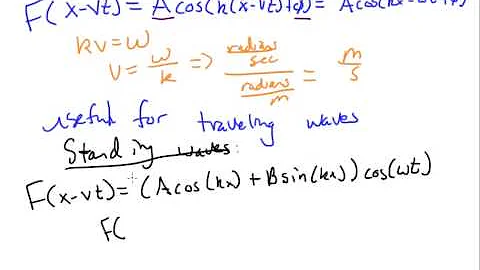 F(x-vt) = A cos(k(x-vt)+φ) = A cos(kx-ωt+φ)
kv=ω
v = ω/k => (radian/sec)/(radian/m) = m/s
useful for traveling waves
Standing waves:
F(x-vt) = (A cos(kx) + B sin(kx)) cos(ωt)
F(